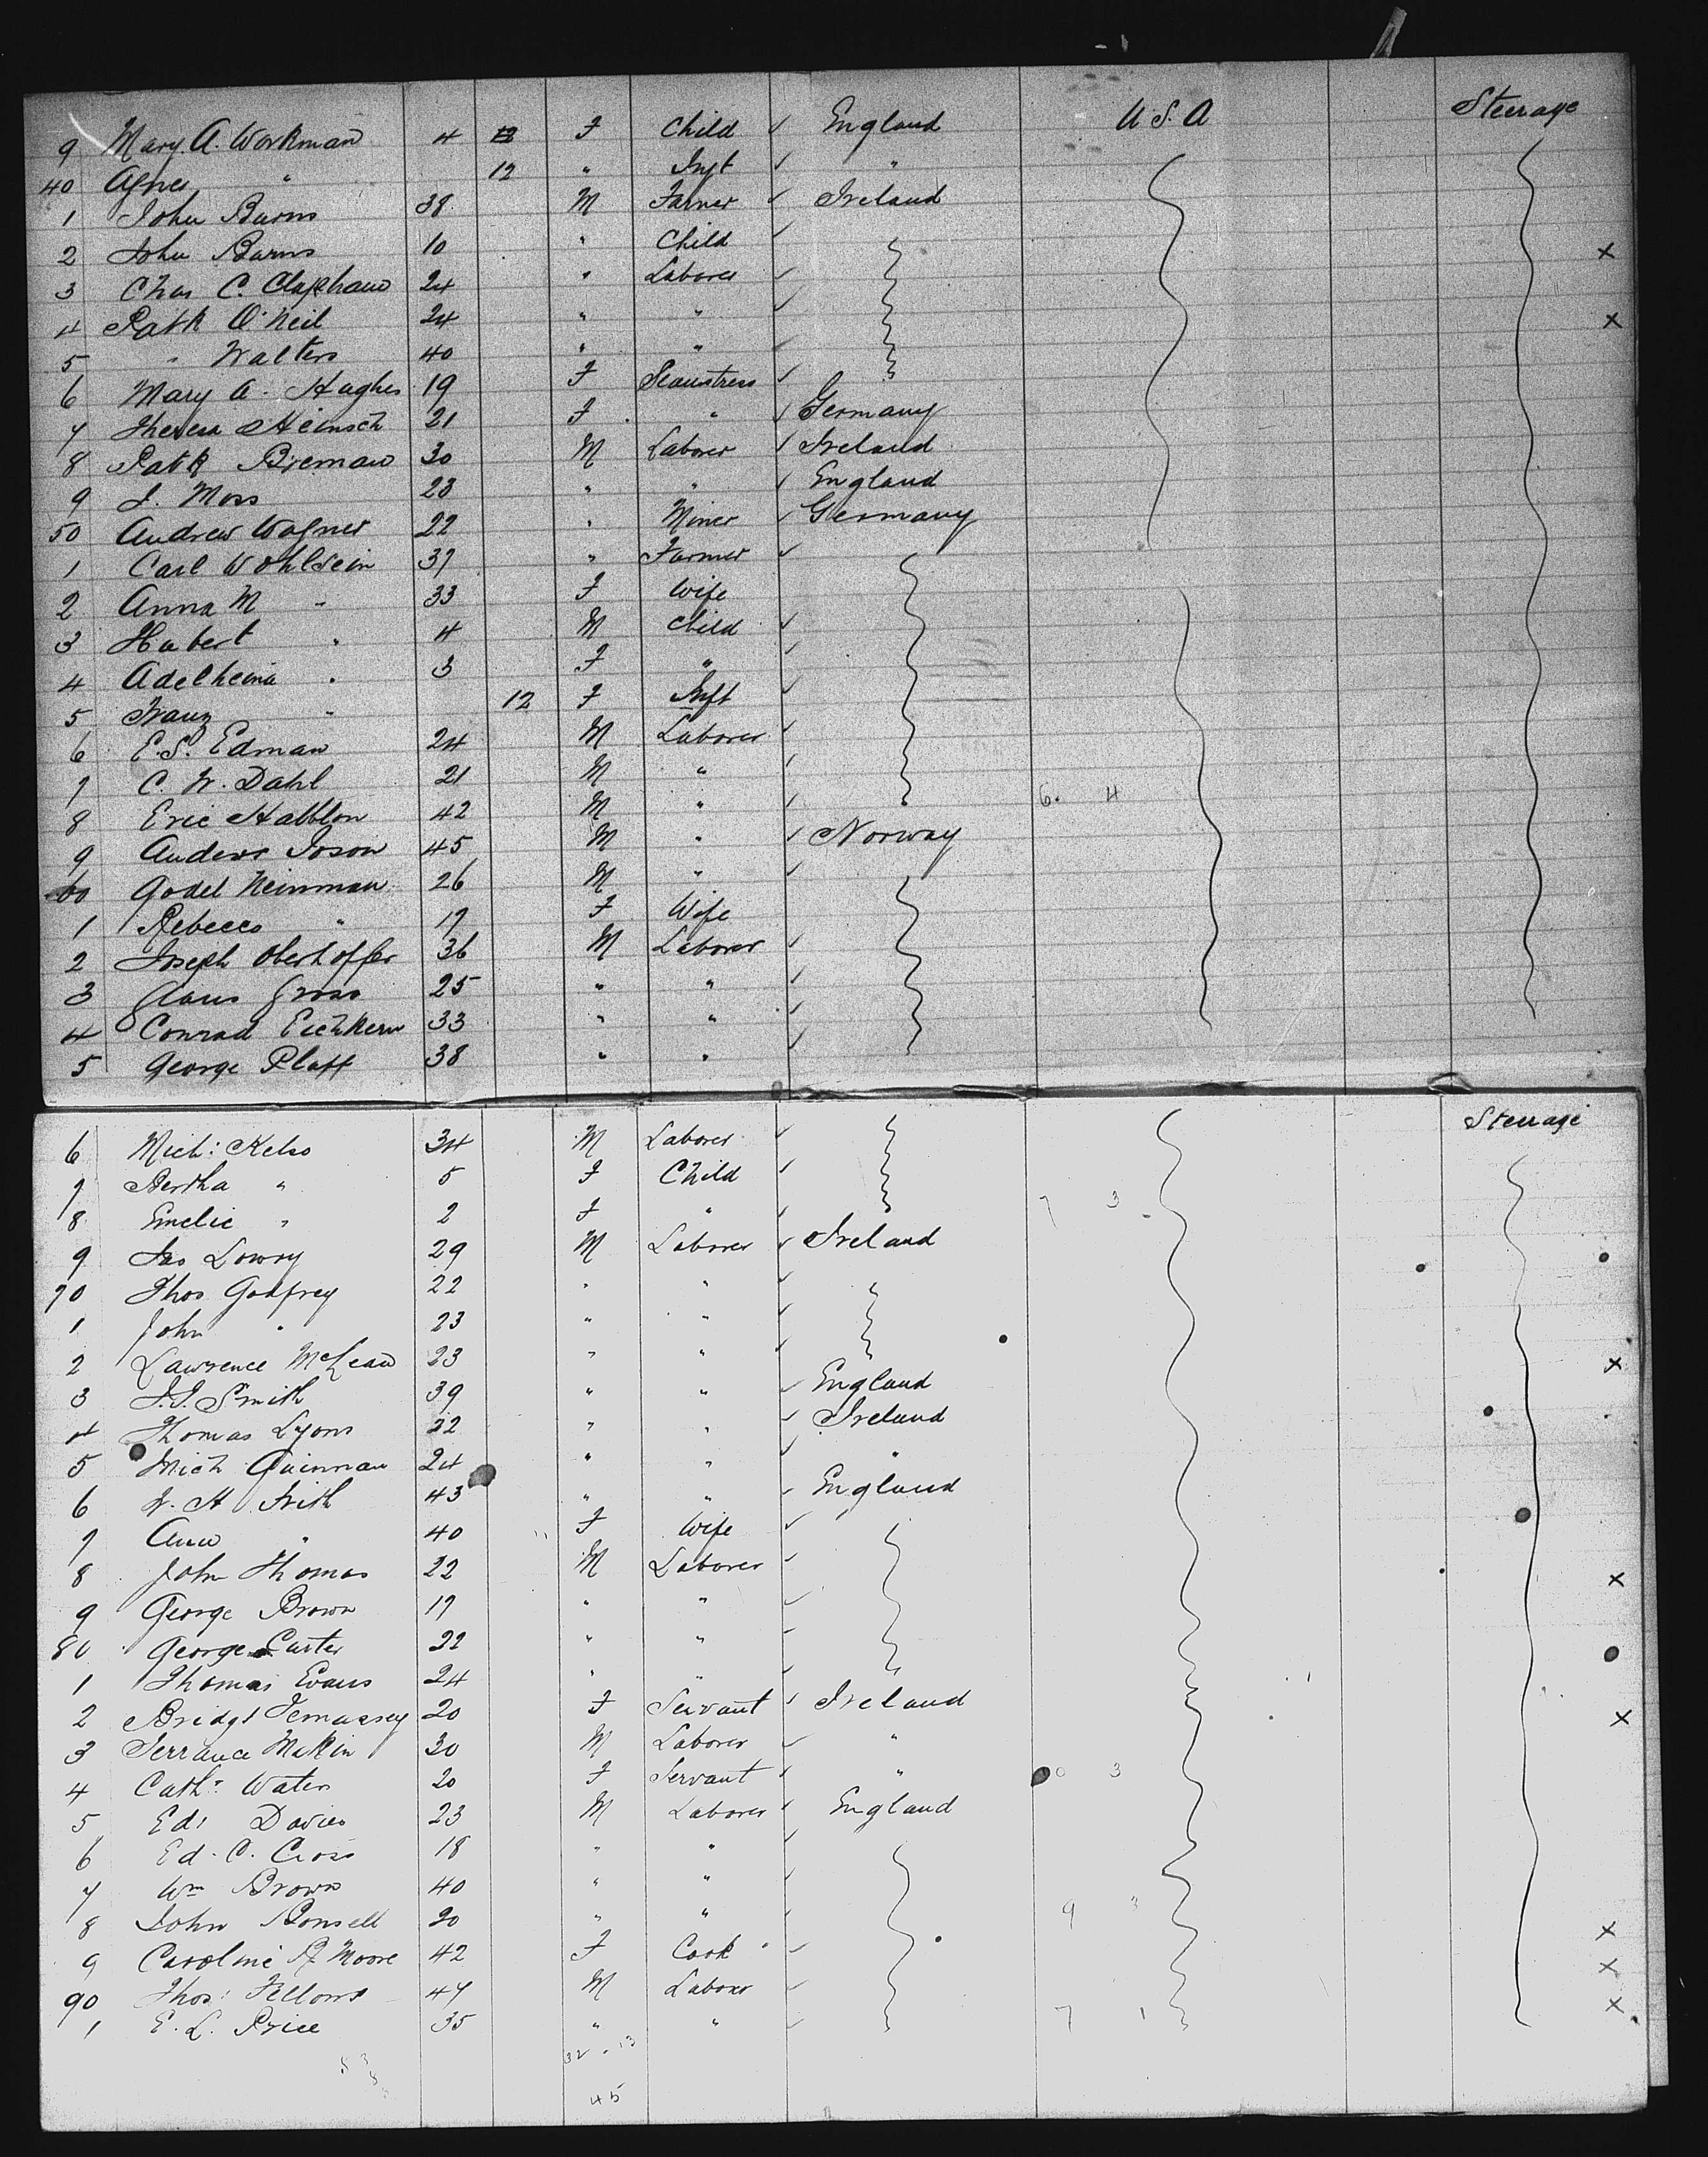 9 Mary. A. Workman 4 F Child ✓ England U.S.A Steerage
40 Agnes " 12 " Inft ✓ "
1 John Burns 38 M Farmer ✓ Ireland
2 John Burns 10 " Child ✓ x
3 Chas C. Clapham 24 " Laborer ✓
4 Patk O'Neil 24 " " ✓ x
5 " Walters 40 " " ✓
6 Mary A. Hughes 19 F Seamstress ✓
7 Theresa Heinsch 21 F " ✓ Germany
8 Patk Bieman 30 M Laborer ✓ Ireland
9 J. Moss 23 " " ✓ England
50 Andrew Wagner 22 " Miner ✓ Germany
1 Carl Wohlsein 37 " Farmer ✓
2 Anna M " 33 F Wife
3 Hubert " 4 M Child ✓
4 Adelheina " 3 F " ✓
5 Franz " 12 F Inft ✓
6 E.S. Edman 24 M Laborer ✓
7 C. W. Dahl 21 M " ✓
8 Eric Hallblon 42 M " ✓ 6. 4
9 Anders Ioson 45 M " ✓ Norway
60 Godel Neinman 26 M " ✓
1 Rebecca " 17 F Wife
2 Joseph Oberhoffer 36 M Laborer ✓
3 Claus Gross 25 " " ✓
4 Conrad Eichkern 33 " " ✓
5 George Plaff 38 " " ✓
6 Mich: Kelso 34 M Laborer ✓ Steerage
7 Bertha " 5 F Child ✓
8 Emelie " 2 F " ✓ 7 3
9 Jas Lowry 29 M Laborer ✓ Ireland
70 Thos Godfrey 22 " " ✓
1 John " 23 " " ✓
2 Lawrence McLean 23 " " ✓ x
3 J.J. Smith 39 " " ✓ England
4 Thomas Lyons 22 " " ✓ Ireland
5 Mich Quinnan 24 " " ✓ "
6 W. H Frith 43 " " ✓ England
7 Ann " 40 F Wife ✓
8 John Thomas 22 M Laborer ✓ x
9 George Brown 17 " " ✓
80 George Carter 22 " " ✓
1 Thomas Evans 24 " " ✓
2 Bridgt 20 F Servant ✓ Ireland x
3 Terrance Makin 30 M Laborer ✓ "
4 Cath: Water 20 F Servant ✓ " 3
5 Ed: Davies 23 M Laborer ✓ England
6 Ed. C. Cross 18 " " ✓
7 Wm Brown 40 " " ✓
8 John Bonsell 20 " " ✓ 9 3 x
9 Caroline R Moore 42 F Cook ✓ x
90 Thos: Fellows 47 M Laborer ✓ x
1 E. L. Price 35 " " ✓ 7 1
32 . 13
45